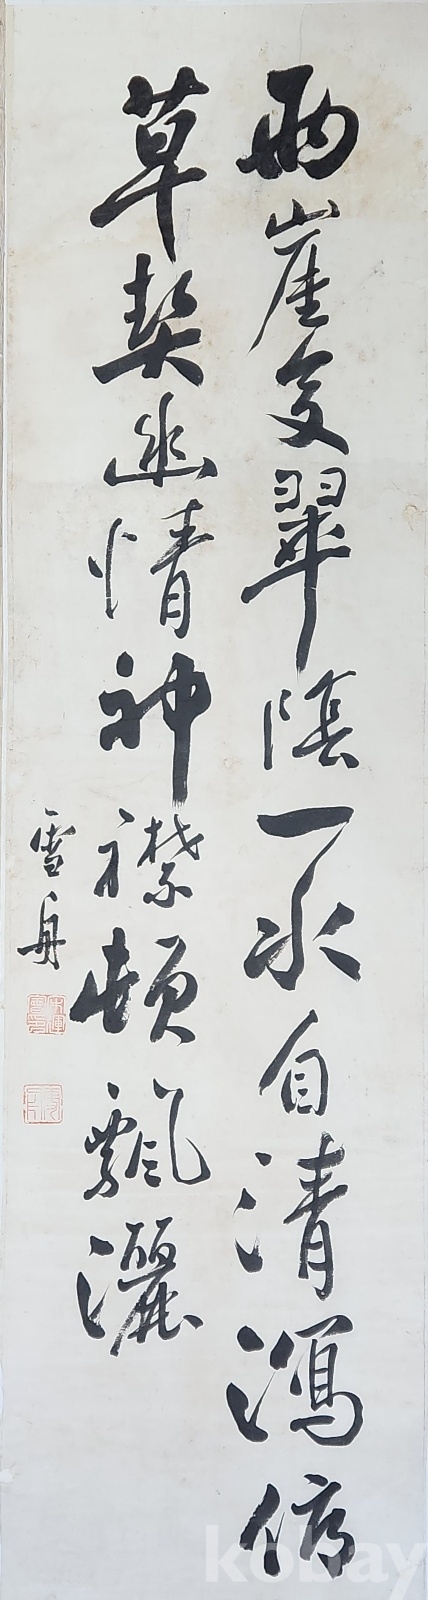 雨崖交翠陰一水自清瀉俯
草契幽情神襟頓飄灑
雪舟
kobay